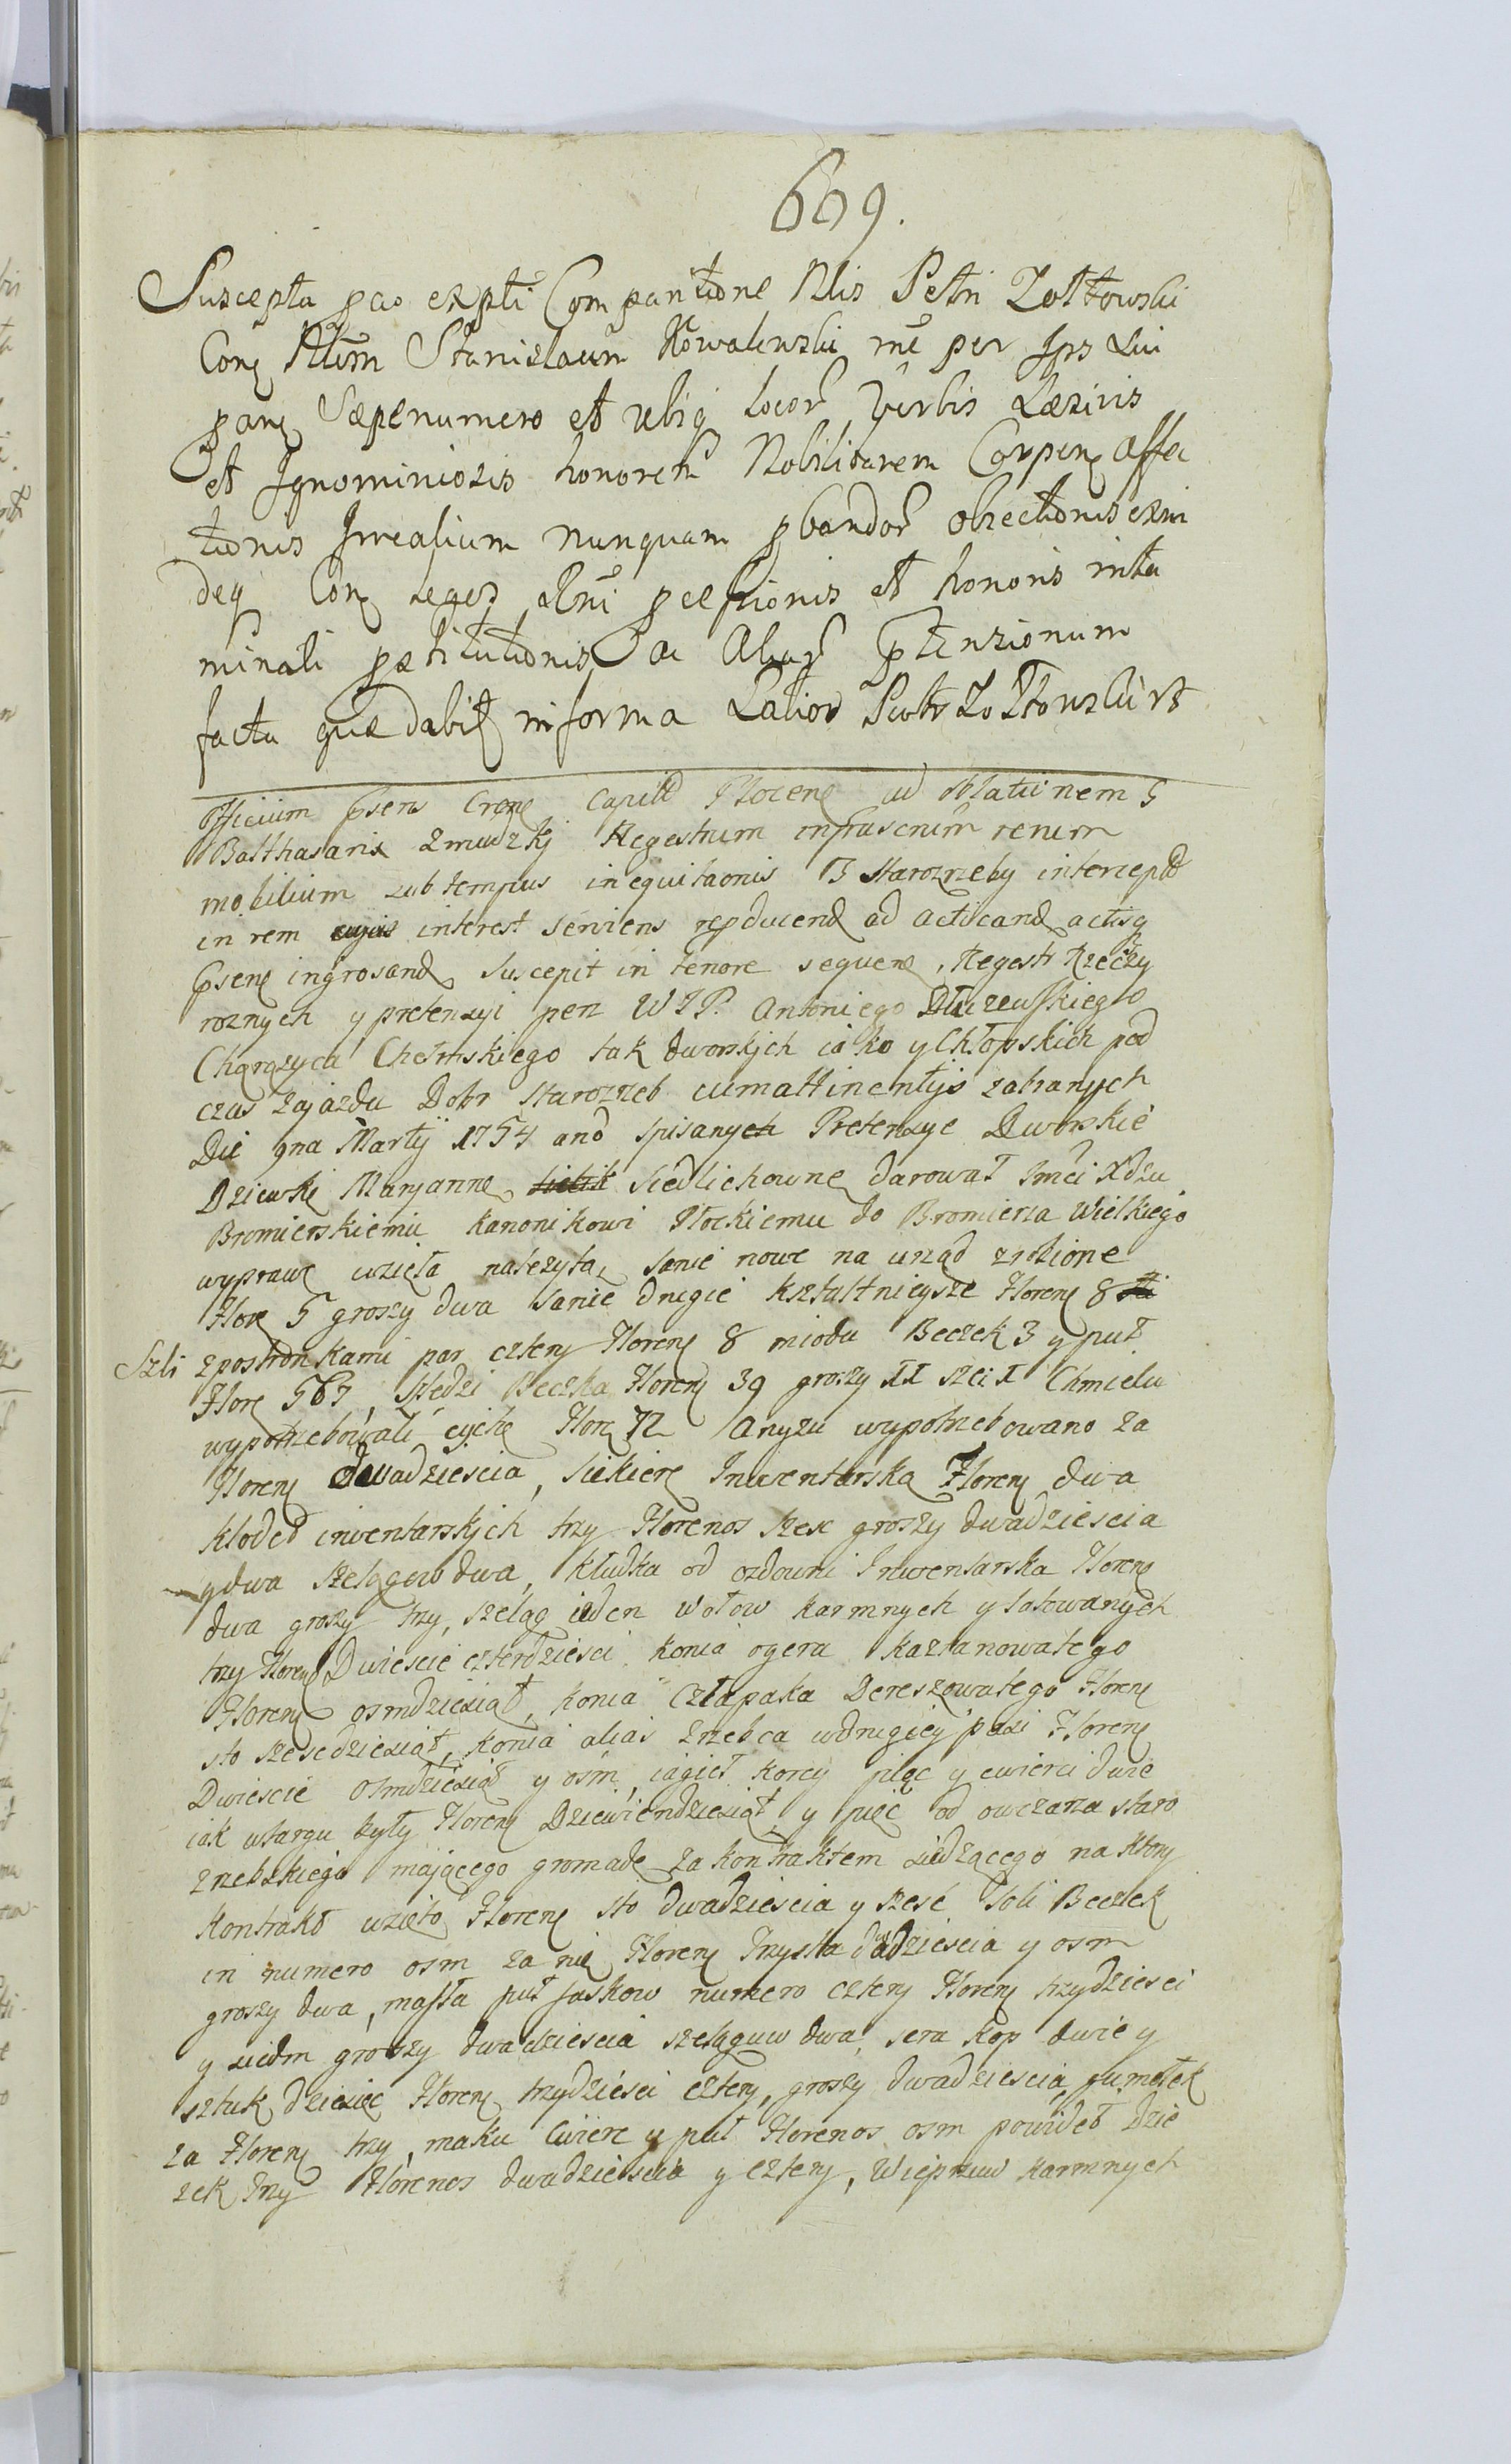 669.
Suscepta pao expti Comparitione Nlis Petri Zołtowski
Con Nlem Stanislaum Kowalewski rne per Ips Lui
par Sæpenumero et ubiq locor Verbis Læsivis
et Ignominiosis honorem Nobilitarem Carpen affec
tionis Irrealium nunquam pbandor obiectionis
deq Con leges Rni et honoris inta
minati ac Aliar ptensionum
facta quæ dabit in forma Latiori Piotr Zołtowski
Officium psens Crene Capitle Plocens ad oblationem G
Balthasaris Zmudzkj Regestrum infrascrum rerum
mobilium sub tempus inequitaonis B Starozreby intercept
in rem cujus interest serviens repducend ad acticand actisq
psens ingrosand suscepit in tenore sequens, Regestr Rzeczy
roznych y pretensyi przez WJP. Antoniego Dłuzewskiego
Charązyca Chełmskiego tak dworskjch iako y Chłopskich pod
czas Zajazdu Dobr Starozreb cumattinentijs zabranych
Die 9na Martij 1754 ano spisanych Pretensye Dworskie
Dziewkę Maryannę Siedlichownę darował Jmci Xdzu
Bromierskiemu kanonikowi Płockiemu do Bromierza Wielkiego
wyprawę wzięła należytą, Sanie nowe na urząd zrobione
Flore 5 groszy dwa Sanie drugie kształtnieysze Floren 8
Szli zpostronkami par cztery Floren 8 miodu Beczek 3 y puł
Flore 567, Sledzi Beczka Floren 39 groszy XX szel X Chmielu
wypotrzebowali Flor 72 Anyzu wypotrzebowano za
Floren dwadziescia, Siekierę Inwentarską Floren dwa
kłodek inwentarskjch trzy Florenos szesc groszy dwadziescia
y dwa szelągow dwa, kłudka od ozdowni Inwentarska Floren
dwa groszy trzy, szeląg ieden wołow karmnych y łatowanych
trzy Floren Dwiescie czterdziesci konia ogera kasztanowatego
Floren osmdziesiąt, konia Człapaka Dereszowatego Floren
sto szescdziesiąt, konia alias Zrzebca wdrugiey pasi Floren
Dwiescie osmdziesiąt y osm, iagieł korcy pięc y cwierci dwie
iak wtargu były Floren Dziewiendziesiąt, y pięć od owczarza staro
zrebskiego mającego gromadę za kontraktem siedzącego na ktory
kontrakt wzięto Floren sto dwadziescia y szesć Soli Beczek
in numero osm za nię Floren Trzysta dwadziescia y osm
groszy dwa, masła puł faskow numero cztery Floren trzydziesci
y siedm groszy dwadziescia szeląguw dwa, sera kop dwie y
sztuk dziesięc Floren trzydziesci cztery, groszy dwadziescia, gumołek
za Floren trzy, maku Cwierc y puł Florenos osm powideł Dzie
zek Trzy Florenos dwadziescia y cztery, Wieprzuw karmnych